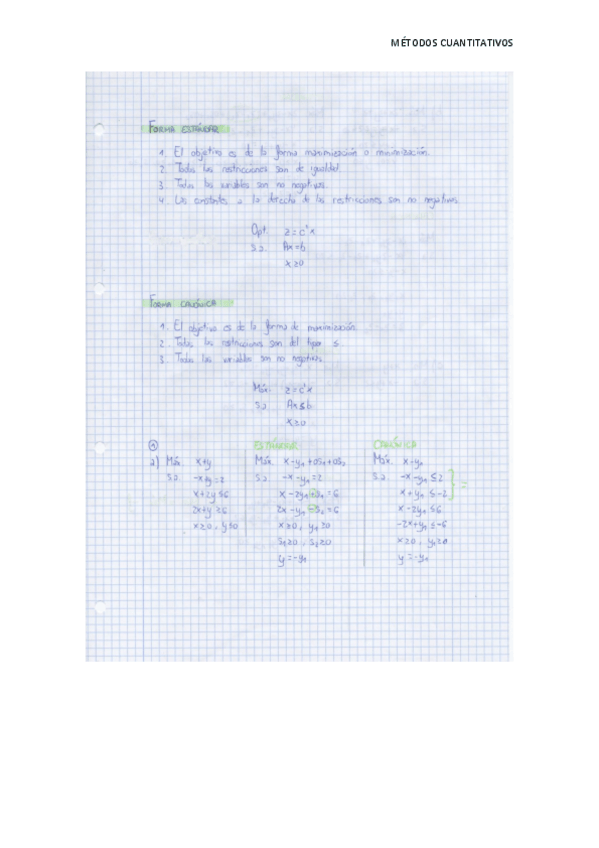 MÉTODOS CUANTITATIVOS
FORMA ESTÁNDAR
1. El objetivo es de la forma maximización o minimización.
2. Todas las restricciones son de igualdad.
3. Todas las variables son no negativas.
4. Las constantes a la derecha de las restricciones son no negativas.
Opt. z=cᵗx
s.a. Ax=b
x≥0
FORMA CANÓNICA
1. El objetivo es de la forma de maximización.
2. Todas las restricciones son del tipo ≤.
3. Todas las variables son no negativas.
Máx. z=cᵗx
s.a. Ax≤b
x≥0
① ESTÁNDAR CANÓNICA
a) Máx. x+y Máx. x-y₁+0s₁+0s₂ Máx. x-y₁
s.a. -x+y=2 s.a. -x-y₁=2 s.a. -x-y₁≤2
x+2y≤6 x-2y₁+s₁=6 x+y₁≤-2 } =
2x+y≥6 2x-y₁-s₂=6 x-2y₁≤6
x≥0, y≤0 x≥0, y₁≥0 -2x+y₁≤-6
s₁≥0, s₂≥0 x≥0, y₁≥0
y=-y₁ y=-y₁